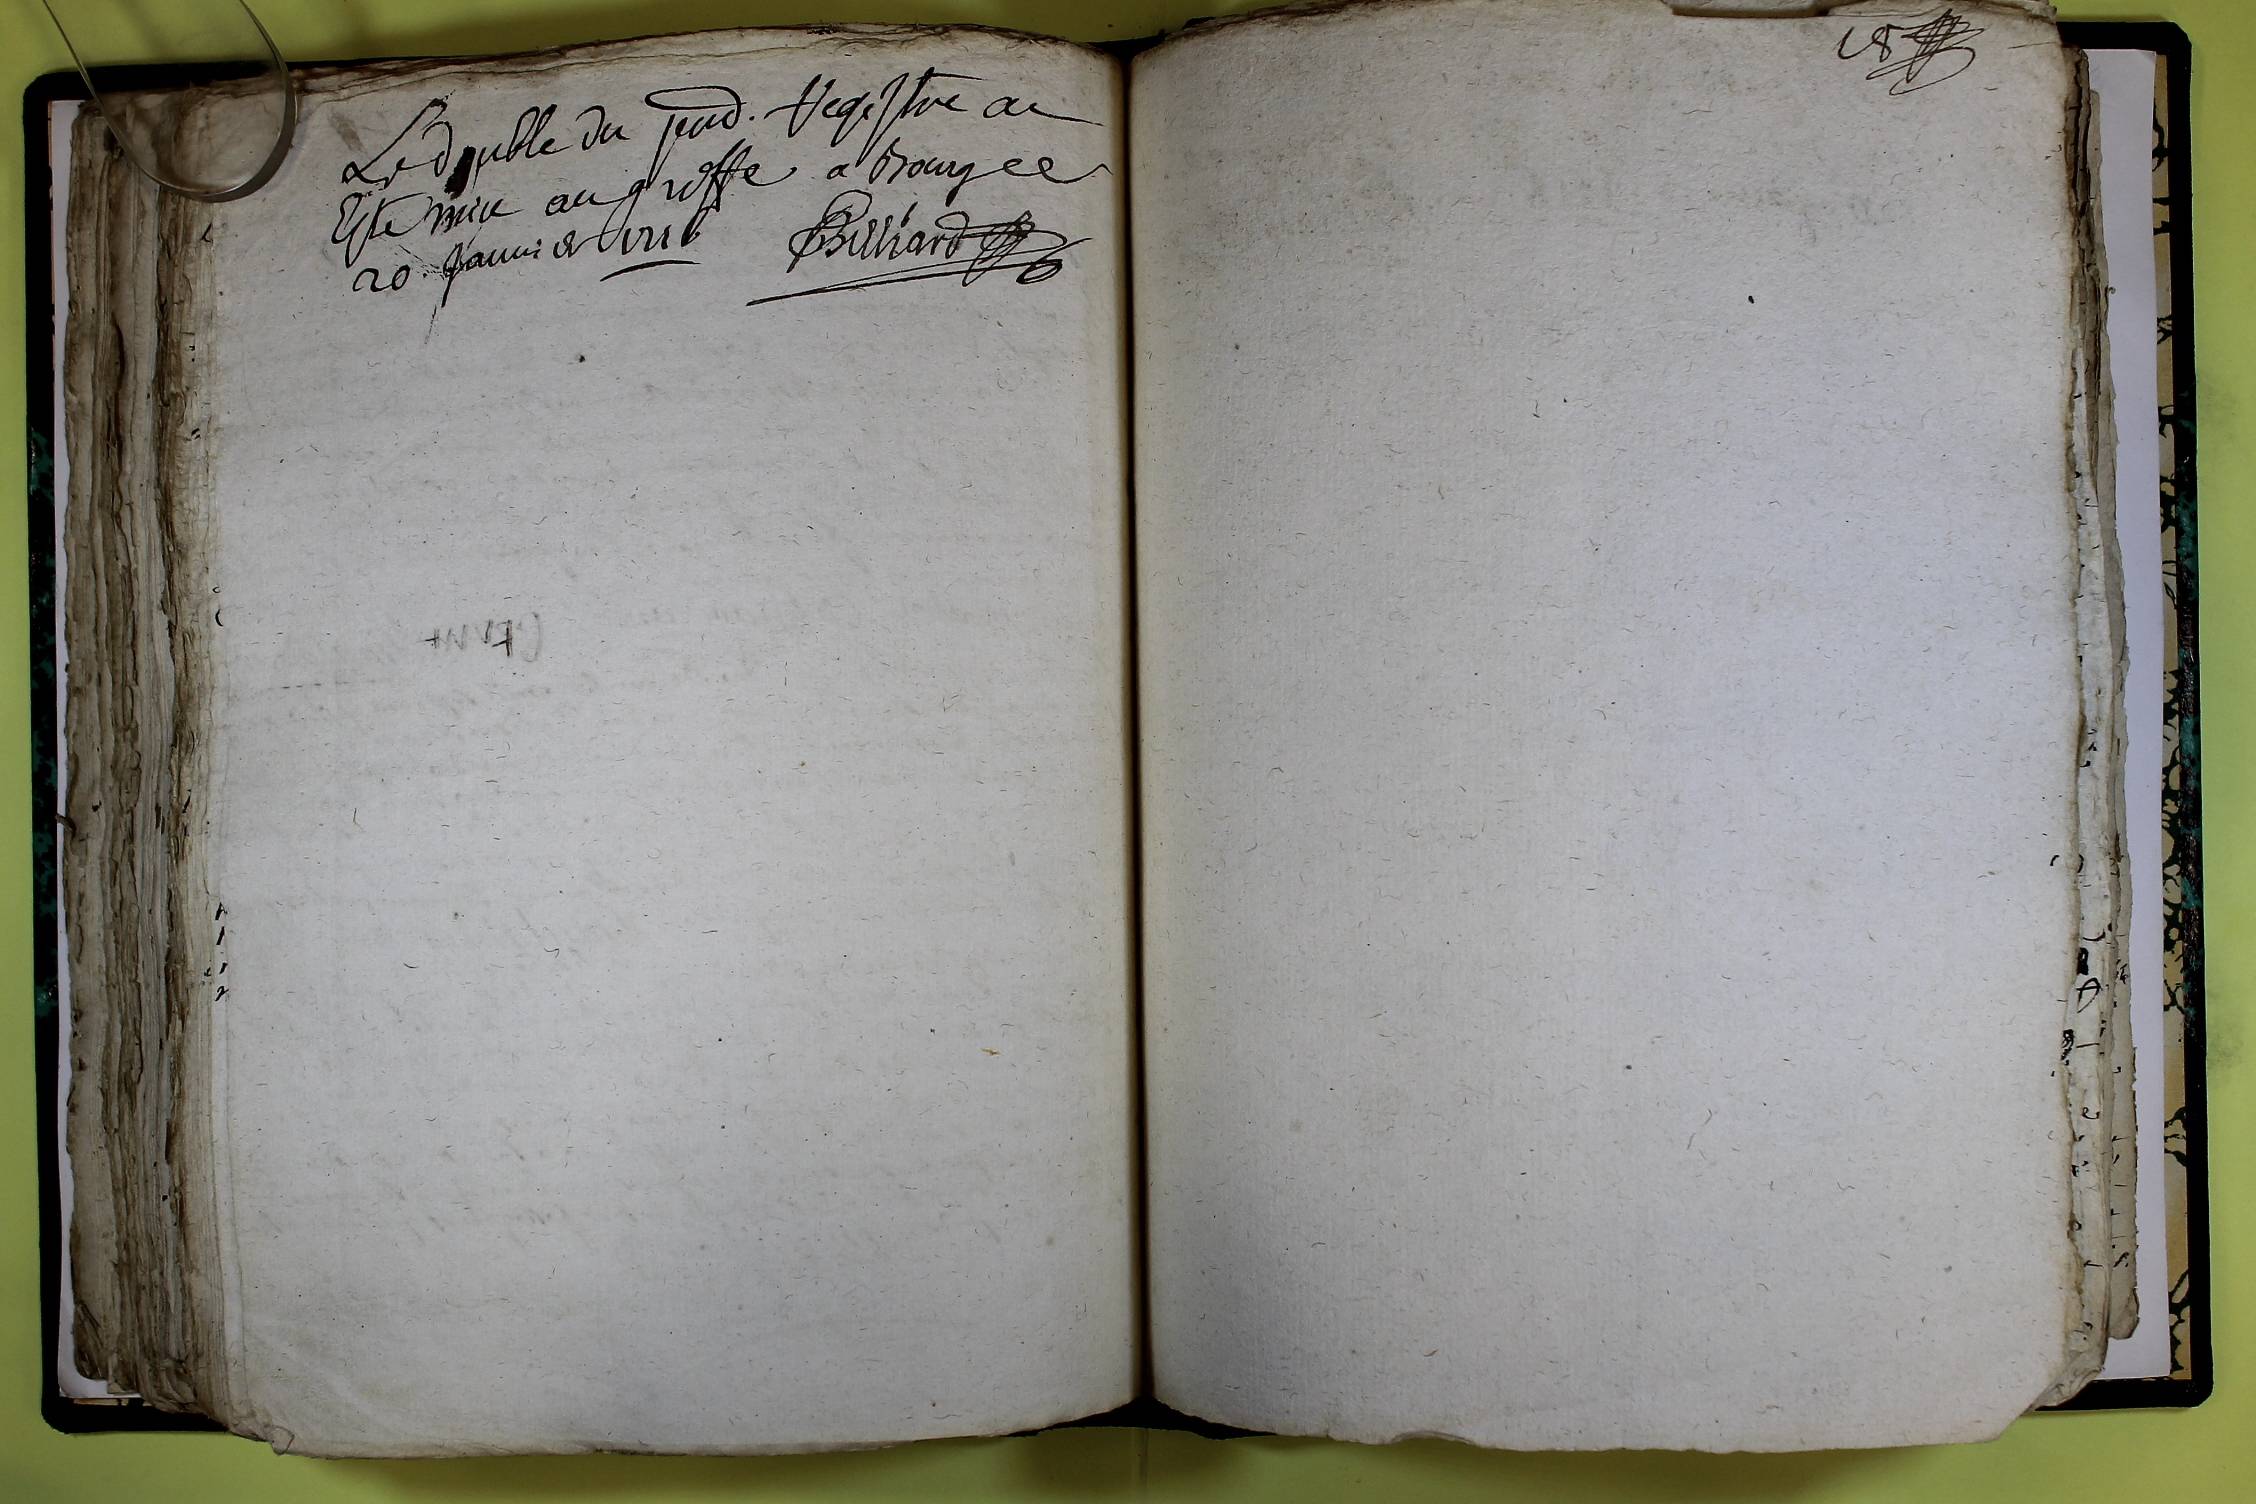 Le double du pend. Registre a
Este mis au greffe a Bourges
20. Janvier 1716 Billiard
18